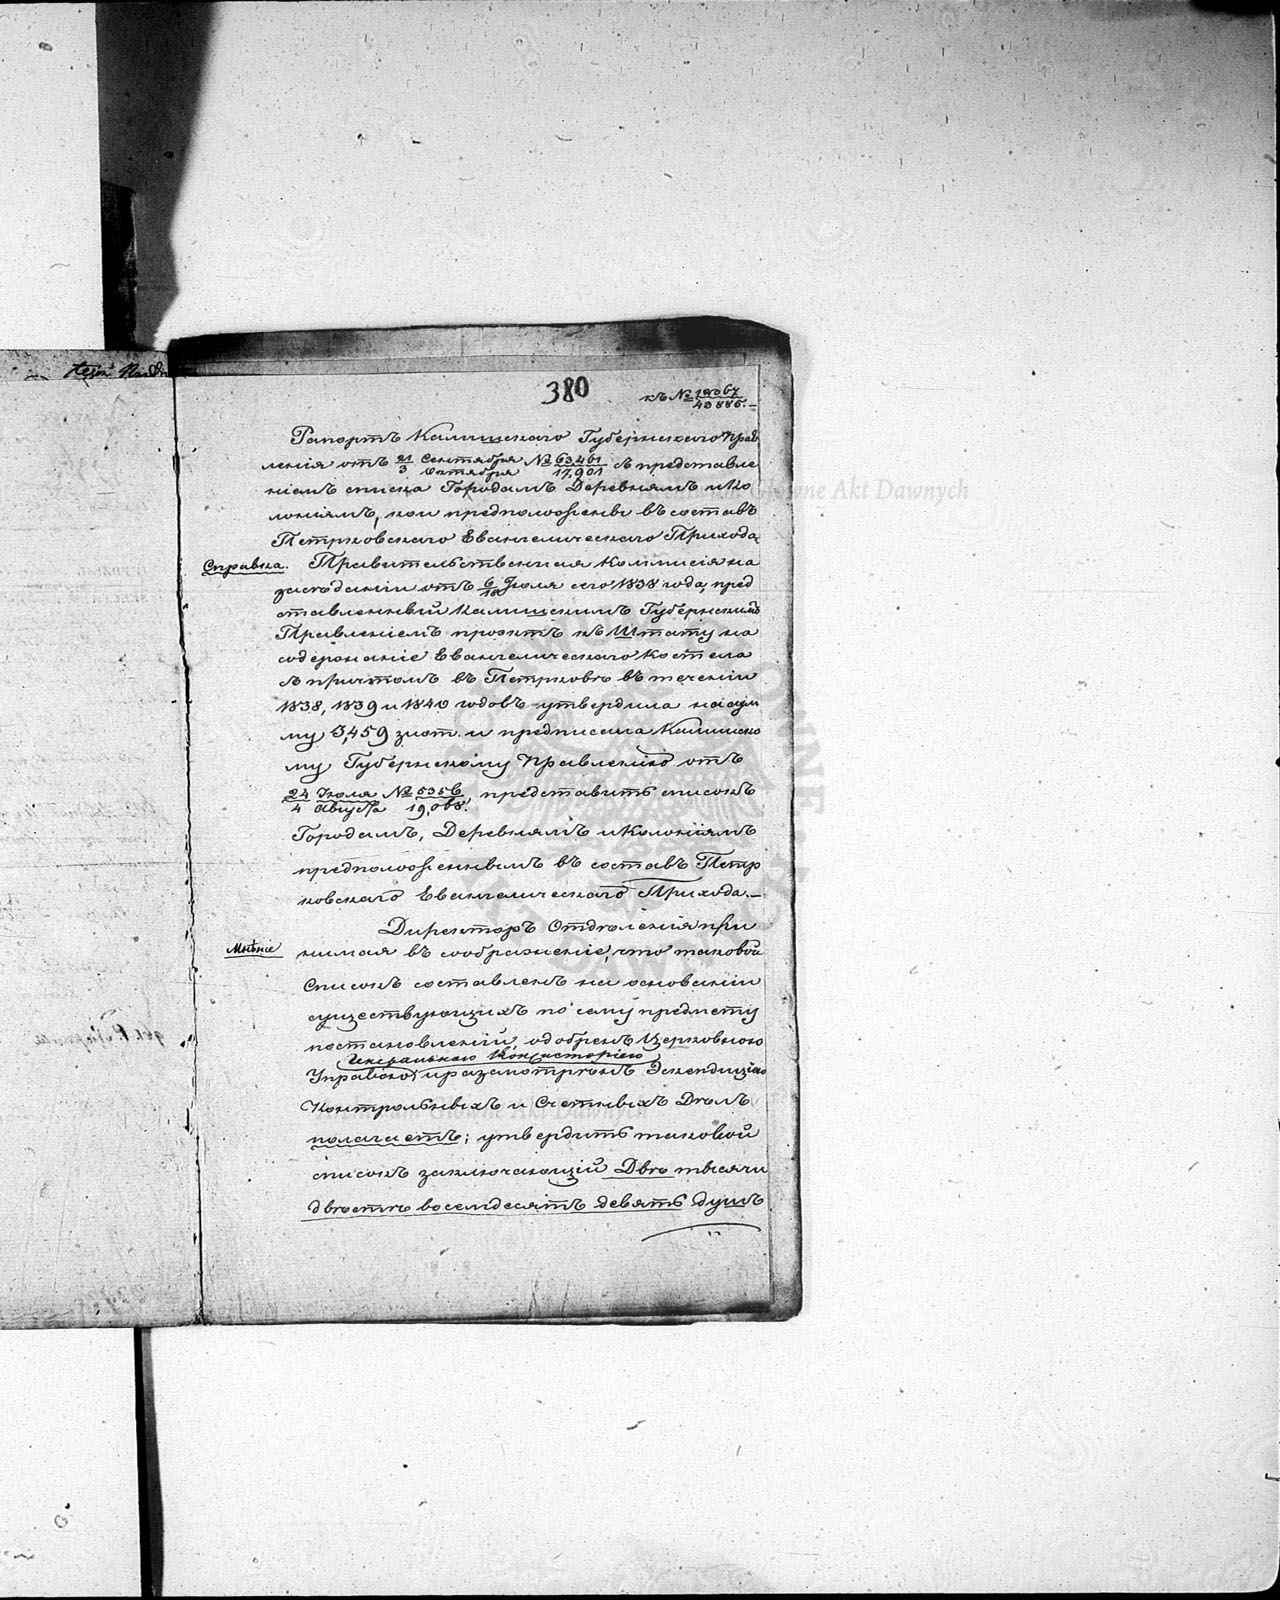 380
къ №
Рапортъ Калишскаго Губернскаго Прав
ленія отъ 21/3 Сентября/Октября № 63461/17,901 съ представле
ніемъ списка Городамъ Деревнямъ и Ко
лоніямъ, кои предположены въ составъ
Петрковскаго Евангелическаго Прихода
Справка. Правительственная Коммисія на
засѣданіи отъ 6/18 Іюля сего 1838 года, пред
ставленный Калишскимъ Губернскимъ
Правленіемъ проэктъ къ Штату на
содержаніе Евангелическаго Костела
съ причтомъ въ Петрковѣ въ теченіи
1838, 1839 и 1840 годовъ утвердила на сум
му 3,459 злот. и предписала Калишско
му Губернскому Правленію отъ
24/4 Іюля/Августа № представить списокъ
Городамъ, Деревнямъ и Колоніямъ
предположеннымъ въ составъ Петр
ковскаго Евангелическаго Прихода.—
Директоръ Отдѣленія при
Мнѣніе нимая въ соображеніе, что таковой
Списокъ составленъ на основаніи
существующихъ по сему предмету
постановленій, одобренъ Церковною
Генеральною Консисторіею
Управою, и разсмотрѣнъ Экспедиціею
Контрольныхъ и Счетныхъ Дѣлъ
полагаетъ; утвердить таковой
списокъ заключающій Двѣ тысячи
двѣстѣ восемдесятъ девять душъ
Akt Dawnych